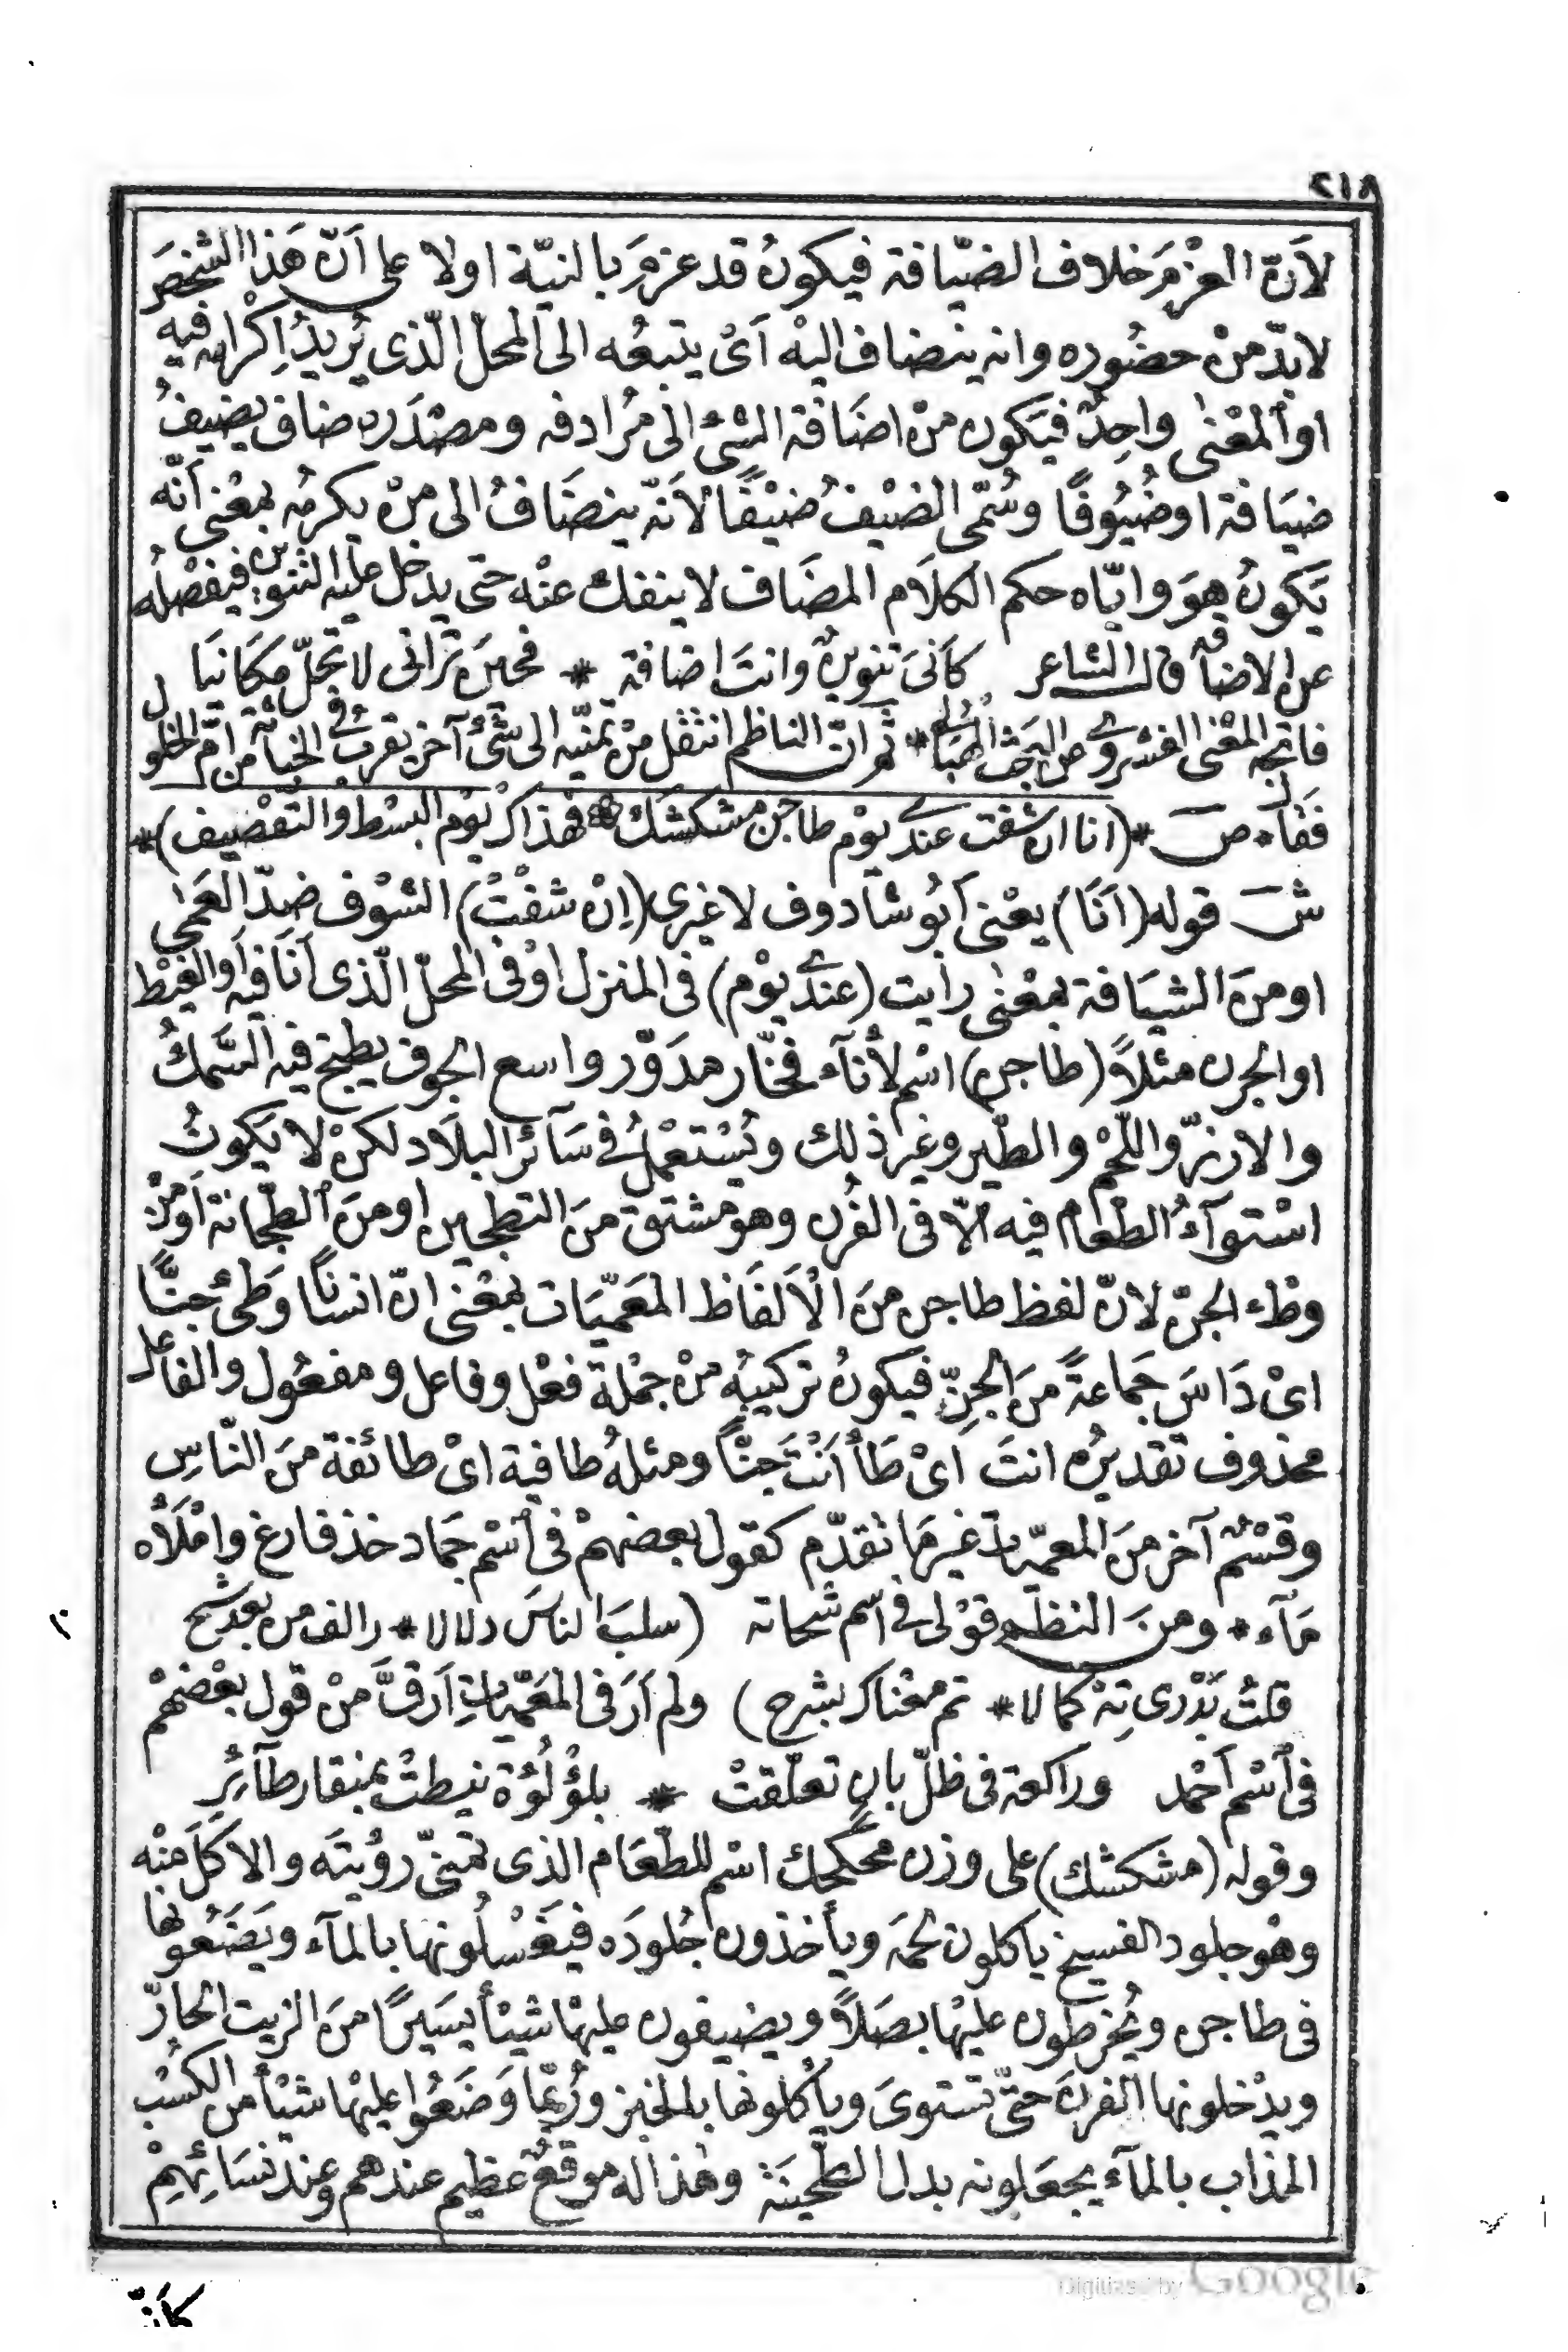 ٢١٨
لأنّ العزْمَ خلاف الضيّافة فيكونُ قد عزمَ بالنيّة اولا على أنّ هَذا الشخصَ
لابدّ منْ حضُوره وانه ينضاف اليْه أىْ يتبعُه الى المحلّ الّذى يُريدُ اِكْرامه فيه
او المعْنٰى واحِدٌ فيَكون منْ اضَافة الشئ الى مُرادفه ومصْدَره ضاف يضيفُ
ضيَافة او ضُيُوفًا وسُمّى الضيْفُ ضيْفًا لأنّه ينضَافُ الى منْ يكرمُه بمعْنى أنّه
يَكونُ هوَ وايّاه حكم الكلاَم المضَاف لا ينفك عنْه حتى يدخل عليه التنوين فيفصْلُه
عن الاضافة قال الشاعر كأنىَ تنوينٌ وانتَ اضافة * فحينَ تَرانى لا تحلّ مكَانيَا
فاتجه المعْنى الفشروى عن البحث الهبالى * ثم انّ الناظم انتقل منْ تمنّيه الى شئ آخر يقربُ فى الخباثة من امّ الخلول
فقال صـ * (انا ان شفت عندى يوْم طاجن مشكشك * فهذاكر يَوْم البسْط والتّقصْيف) *
شـ قوله (اَنَا) يعْنى أبُو شادوف لا غيرى (اِنْ شفْتْ) الشوْف ضدّ العَمٰى
او منَ الشيَافة بمعْنٰى رأيت (عندى يوْم) فى المنزل اوْ فى المحلّ الّذى اَنَا فيه أو الغيْط
او الجرن مثلاً (طاجن) اسْم لأنآء فخّار مدَوّر واسع الجوف يطبخ فيه السَّمكُ
والارزّ واللّحْم والطّير وغيرْ ذلك ويُسْتعْملُ فى سَائر البلاَد لكنْ لا يَكونُ
اسْتوآءُ الطعَام فيه الاّ فى الفُرن وهو مشتق منَ التطجين او منَ الطّجانة أو منْ
وطْء الجنّ لانّ لفظ طاجن منَ الْاَلفَاظ المعَمّيَات بمعْنى انّ انسانًا وَطئ جنًّا
اىْ دَاسَ جَماعةً منَ الجنّ فيكونُ تركيبُه منْ جمْلة فعْل وفاعل ومفعُول والفاعل
محذوف تقديرُه انتَ اىْ طَأْ اَنْتَ جنًّا ومثلهُ طافية اىْ طائفة منَ النّاس
وقسْمٌ آخر منَ المعمّيات غيرمَا تقدّم كقول بعضهمْ فى أسْم جماد خذ فارغ وامْلَأْه
مَآء * ومنَ النظم قوْلى فى اسْم شحاته (سلبَ الناسَ دلالا * رالف من بعد شح
قلتُ بَدْرى تِهْ كمالا * تم معْناكر بشرح) ولم اَرَ فى المعَمّيات اَرقَّ منْ قول بعْضهمْ
فى أسْم اَحْمد وراكعة فى ظلّ بان تعلّقتْ * بلؤْلُؤة نيطتْ بمنقار طآئر
وقوله (مشكشك) على وزن محكحك اسْم للطّعَام الذى تمنىّ رؤيتَه والاكلَ منْه
وهْو جلود الفسيخ ياكلون لحْمَه ويأخذون جُلودَه فيَغْسلُونها بالمآء ويَضعُونها
فى طاجن ويُخرطون عليْها بصَلاً ويضيفون عليْها شيْئاً يسَيرًا منَ الزيت الحارّ
ويدْخلونها الفرنَ حتّى تستوىَ ويأكلونها بالخبز ورُبّما وَضَعُوا عليْها شيْئا من الكسْب
المذاب بالمآء يجعَلونه بدل الطّحينَة وهٰذا له موْقعٌ عظيم عندهم وعنْد نسَائهِمْ
كأنّ
Digitized by Google